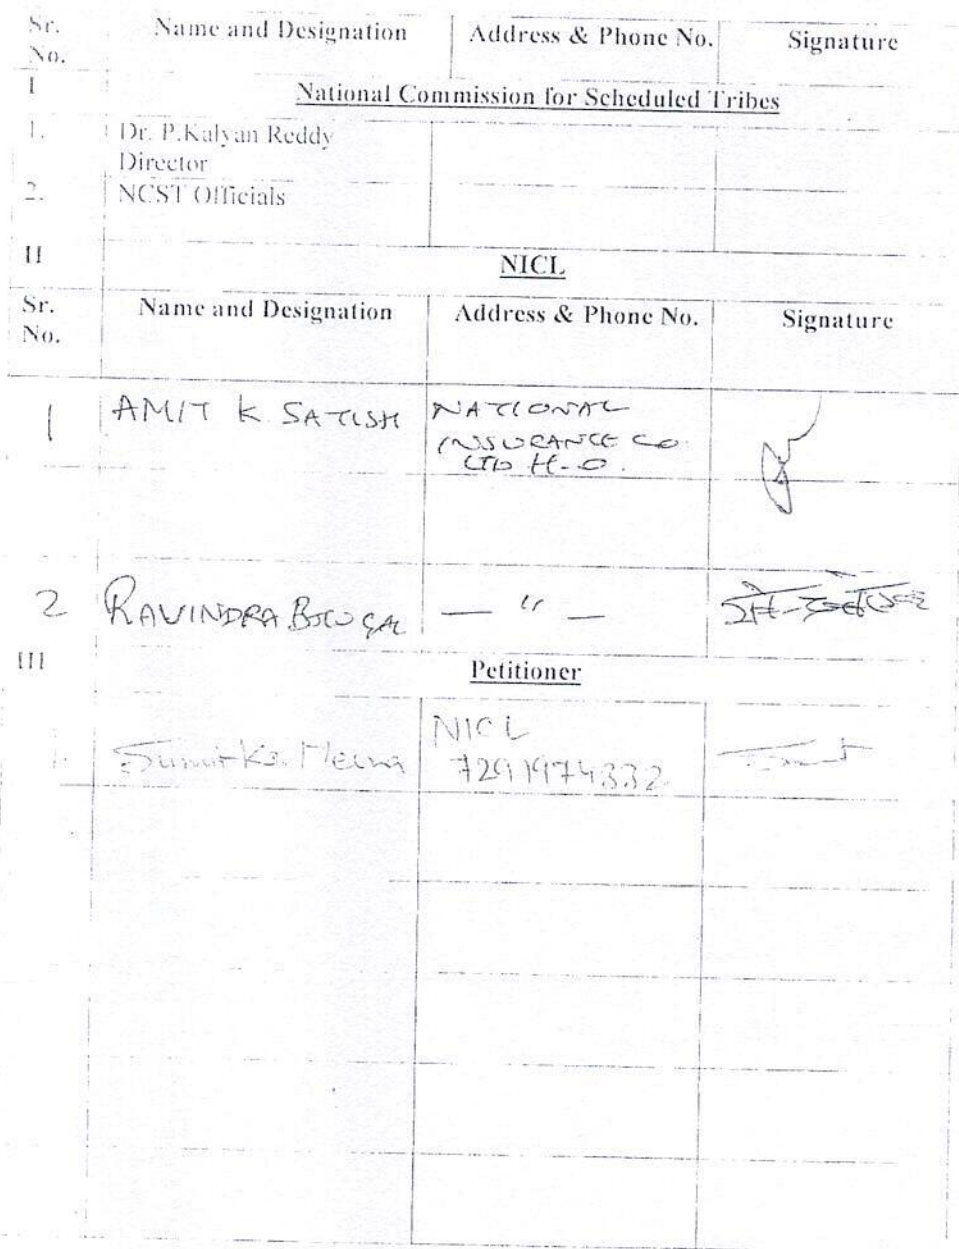 Sr. No. Name and Designation Address & Phone No. Signature
I National Commission for Scheduled Tribes
1. Dr. P.Kalyan Reddy
Director
2. NCST Officials
II NICL
Sr. No. Name and Designation Address & Phone No. Signature
1 AMIT K. SATISH NATIONAL
INSURANCE CO
LTD H-O.
2 RAVINDRA — " —
III Petitioner
1. Sumit Kr. Meena NICL
7291974332